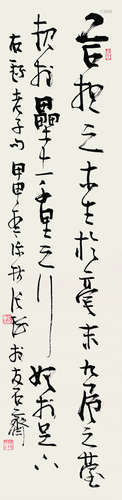 合抱之木生於毫末九層之臺
起於壘土千里之行始於足下
右録老子句甲申冬於友石齋